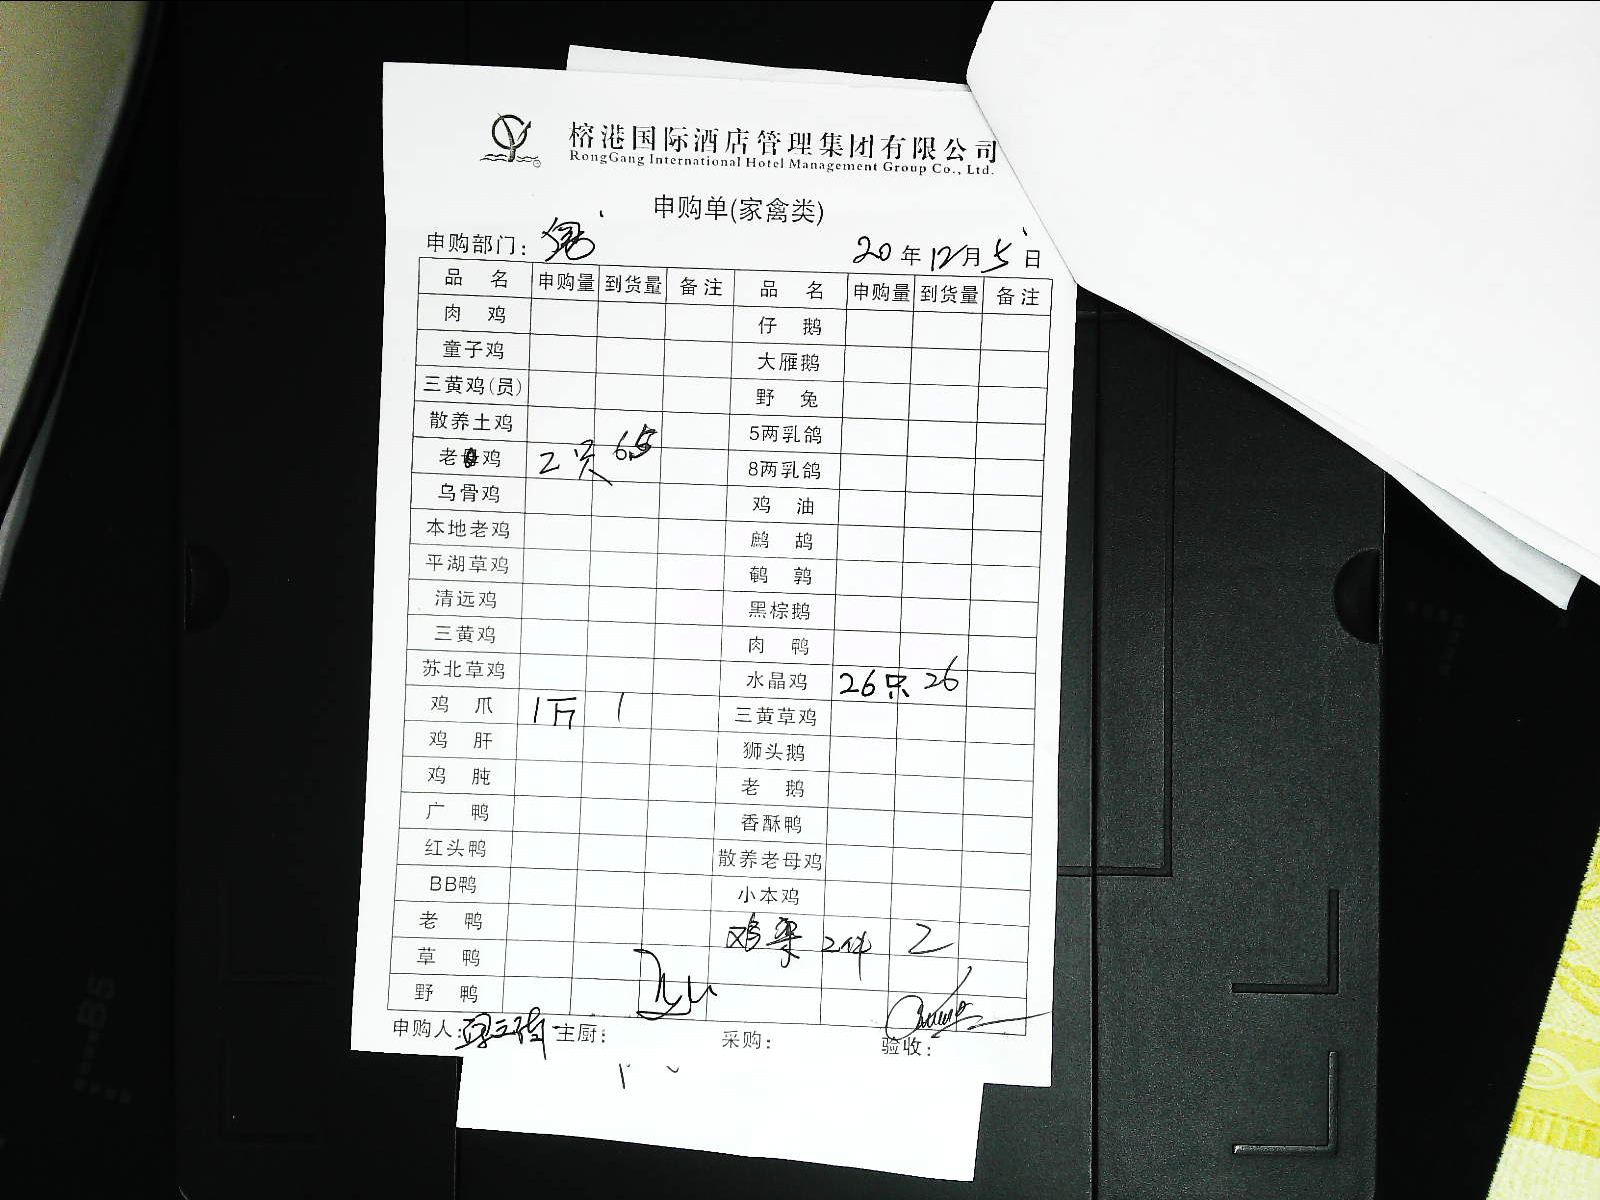 榕港国际酒店管理集团有限公司
RongGang International Hotel Management Group Co., Ltd.
申购单(家禽类)
申购部门: 20年12月5日
品名 申购量 到货量 备注 品名 申购量 到货量 备注
肉鸡 仔鹅
童子鸡 大雁鹅
三黄鸡(员) 野兔
散养土鸡 5两乳鸽
老母鸡 2只 6.5 8两乳鸽
乌骨鸡 鸡油
本地老鸡 鹧鸪
平湖草鸡 鹌鹑
清远鸡 黑棕鹅
三黄鸡 肉鸭
苏北草鸡 水晶鸡 26只 26
鸡爪 1斤 1 三黄草鸡
鸡肝 狮头鹅
鸡肫 老鹅
广鸭 香酥鸭
红头鸭 散养老母鸡
BB鸭 小本鸡
老鸭 鸡架 2件 2
草鸭
野鸭
申购人: 主厨: 采购: 验收: